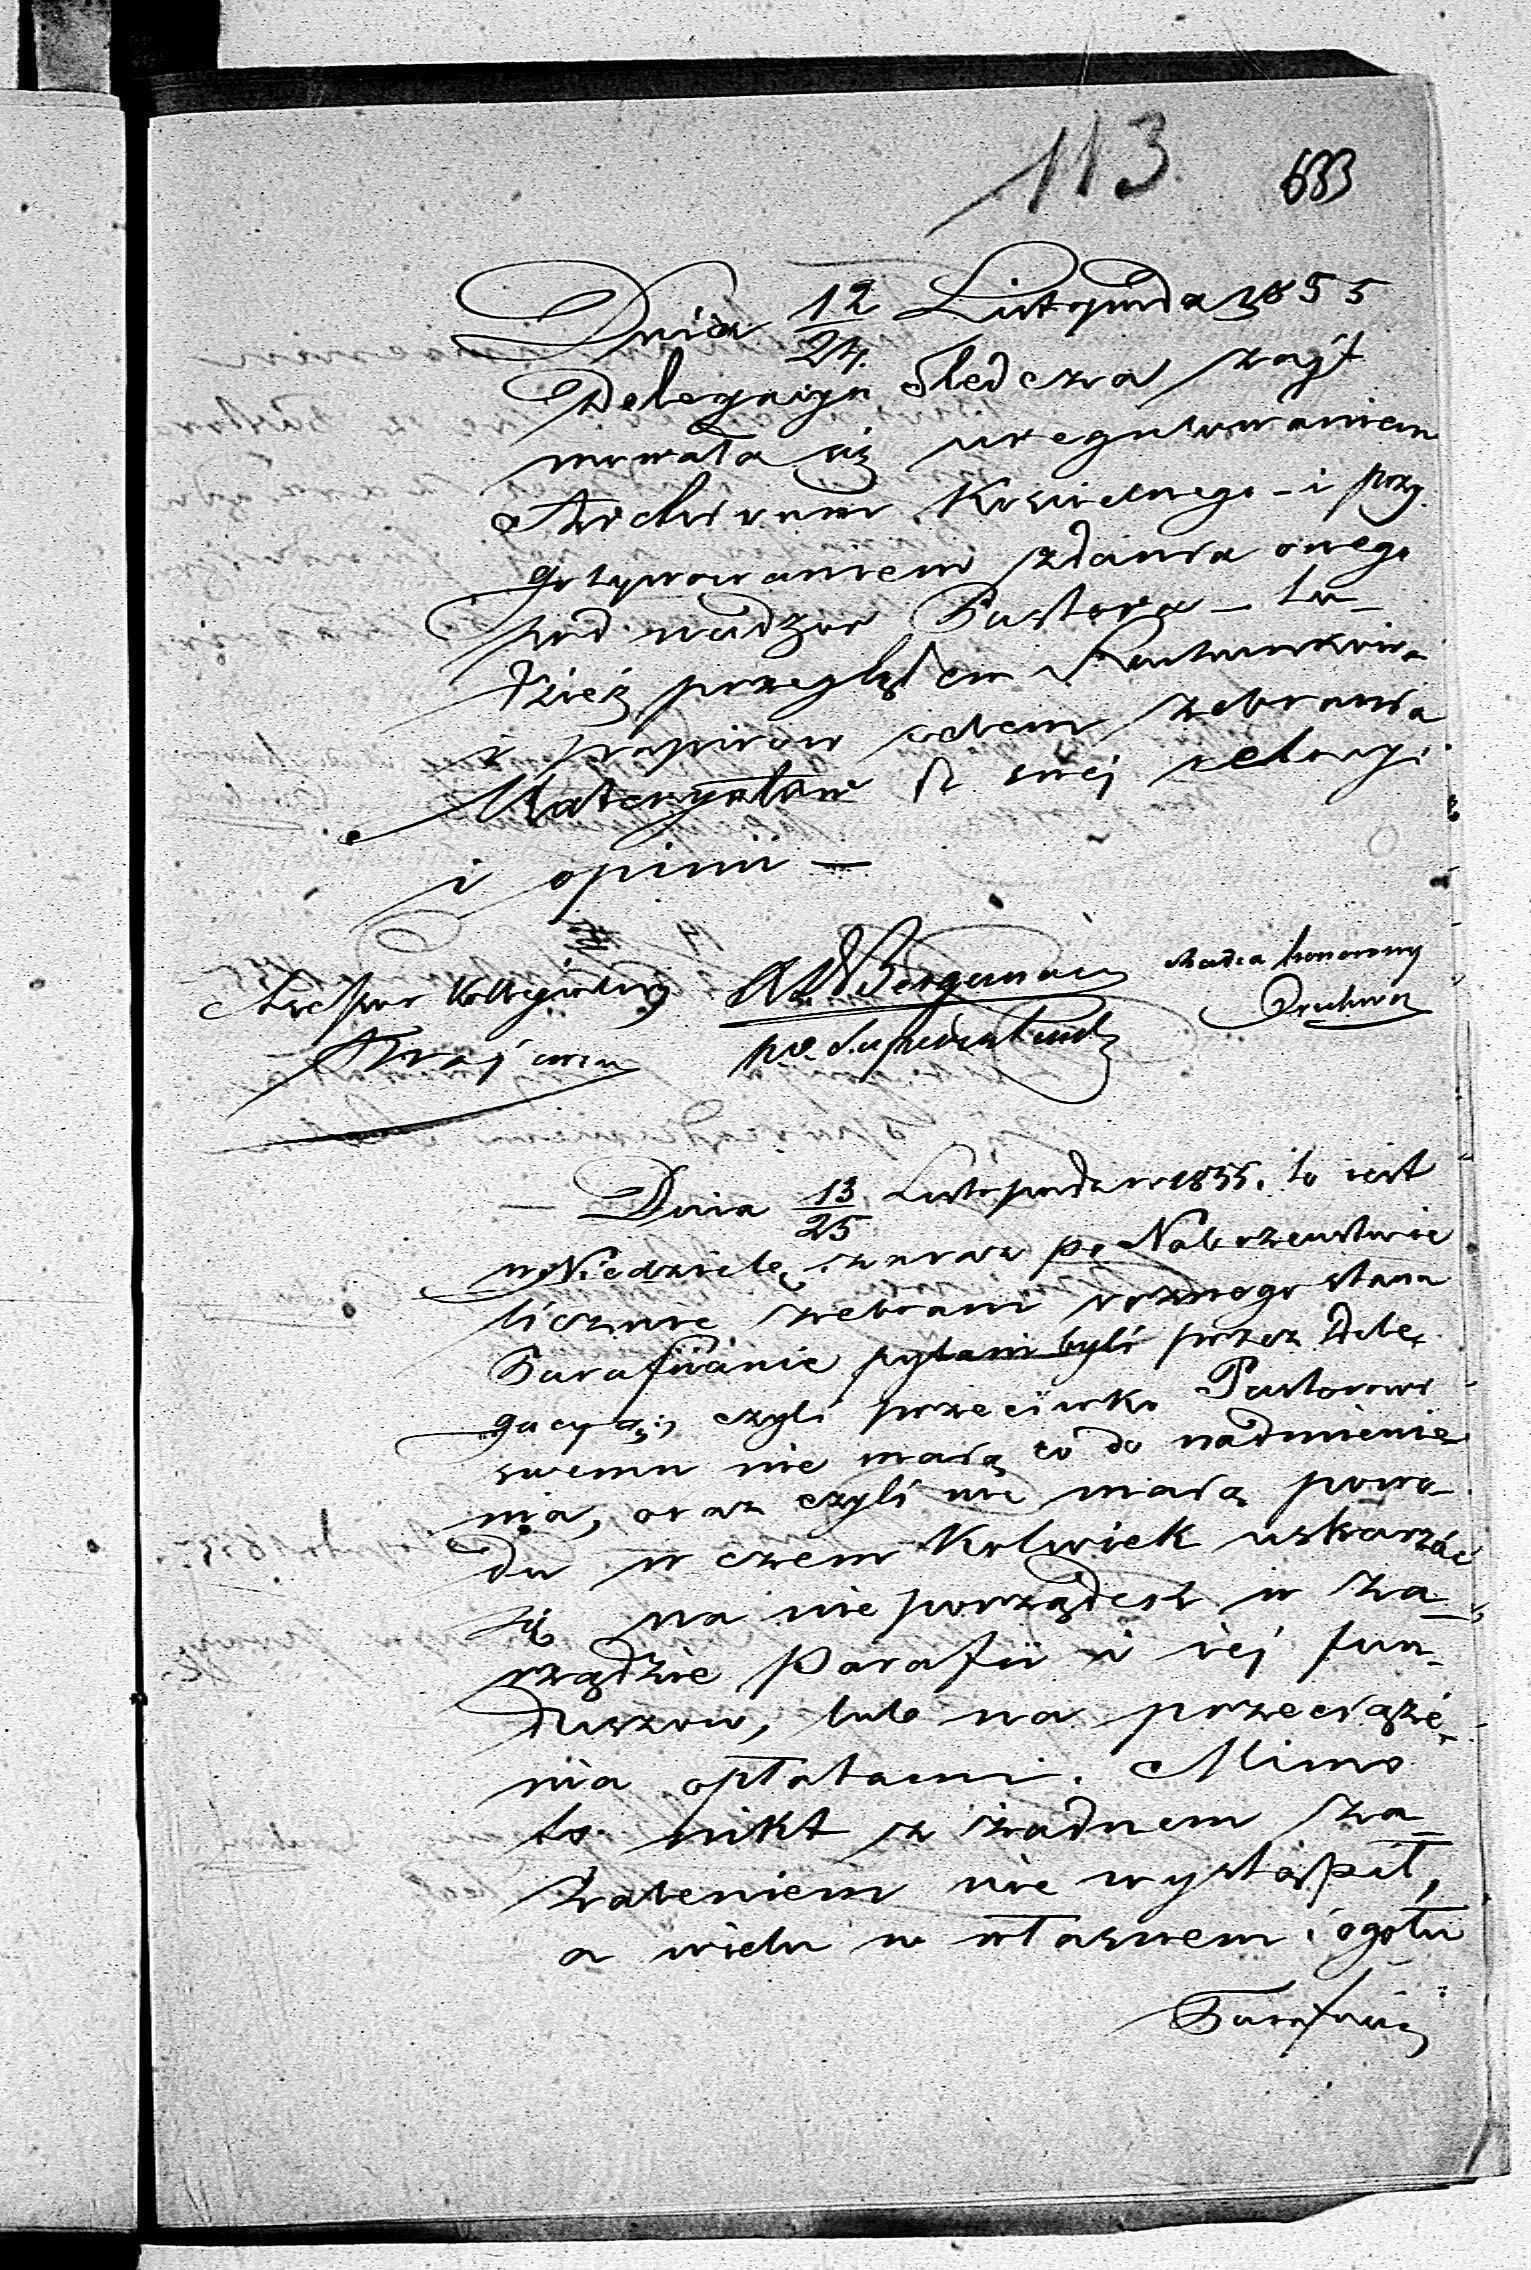 113
633
Dnia 12/24 Listopada 1855
Delegacya Śledcza zaj-
mowała się uregulowaniem
Archiwum Koscielnego - i przy
gotywowaniem zdania onego
pod nadzor Pastora - tu-
dzież przeglądem Rachunków
i papirow celem zebrania
Materyałow do swej relacyi
i opinii —
Assessor Kollegialny
Radca honorowy
p.o. Superintendenta
Dnia 13/25 Listopada 1855. to iest
w Niedzielę zaraz po Nabożeństwie
licznie zebrani rożnego stanu
Parafiianie pytani byli przez Dele
gacyą, czyli przeciwko Pastorowi
swemu nie maią co do nadmienie
nia, oraz czyli nie maią powo-
du w czem kolwiek uskarżać
się na nie porządek w za-
rządzie Parafii i iej fun-
duszow, lub na przeciąże-
nia opłatami. Mimo
to nikt z żadnem za-
żaleniem nie wystąpił,
a wielu w własnem i ogołu
Parafian